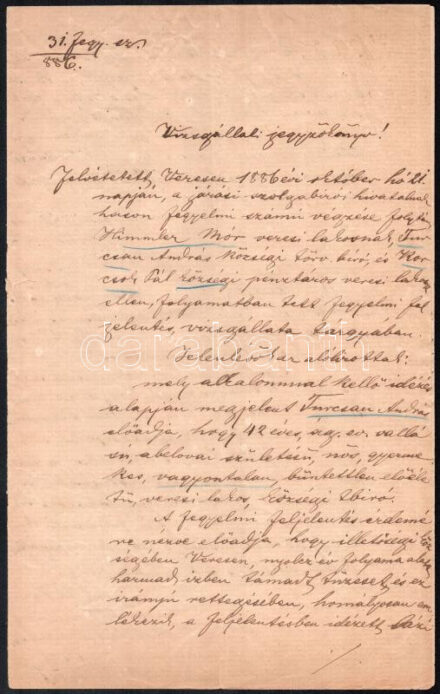 31. fegy. sz.
886.
Vizsgállati jegyzőkönyv!
Felvétetett Veresen 1886 évi október hó 21.
napján, a járási szolgabirói hivatalnak
hason fegyelmi számú végzése folytá
Himmler Mór veresi lakosnak Tur
csan András községi törv. biró, és Kor
csok Pál községi pénztáros veresi lakos
ellen, folyamatban tett fegyelmi fel
jelentés, vizsgállata tárgyában.
Jelenlévők az alólirottak:
mely alkalommal kellő idézés
alapján megjelent Turcsan András
előadja, hogy 42 éves, ág. ev. vallá
sú, abelovai születésű, nős, gyerme
kes, vagyontalan, büntettlen előéle
tű, veresi lakos községi biró.
A fegyelmi feljelentés érdemé
re nézve előadja, hogy illetőségi köz
ségében Veresen, nyolcz év folyama alatt
harmad izben támadt tűzeset, és ez
irányú rettegésében, homályosan em
lékezik, a feljelentésben idézett házi
darabanth